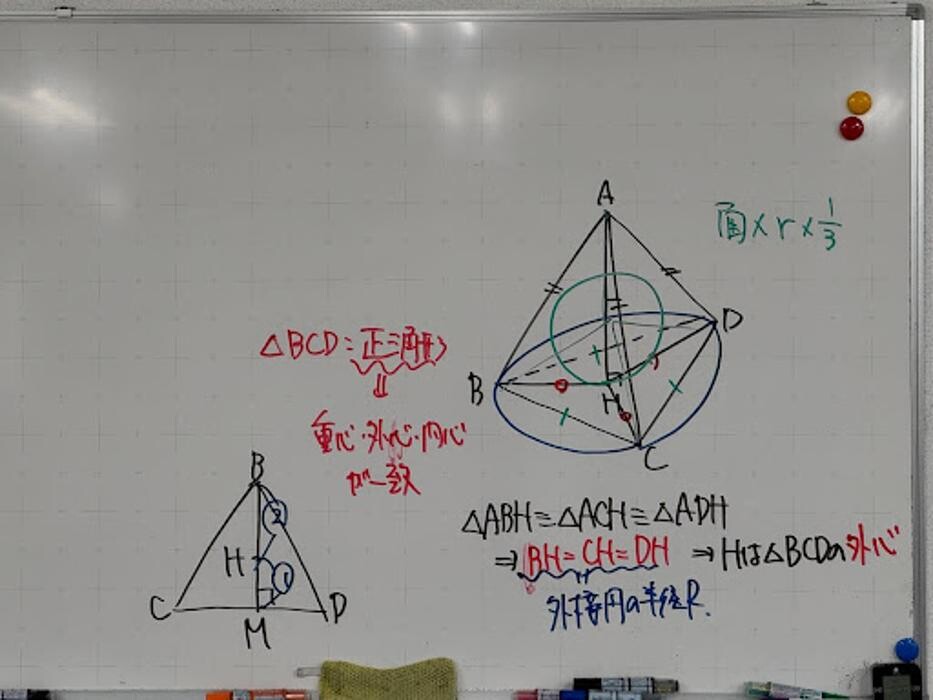 A
面×r×1/3
D
△BCD:正三角形
B
H
重心・外心・内心
が一致
C
B
②
△ABH≡△ACH≡△ADH
H
⇒BH=CH=DH ⇒Hは△BCDの外心
①
C
D
外接円の半径R.
M